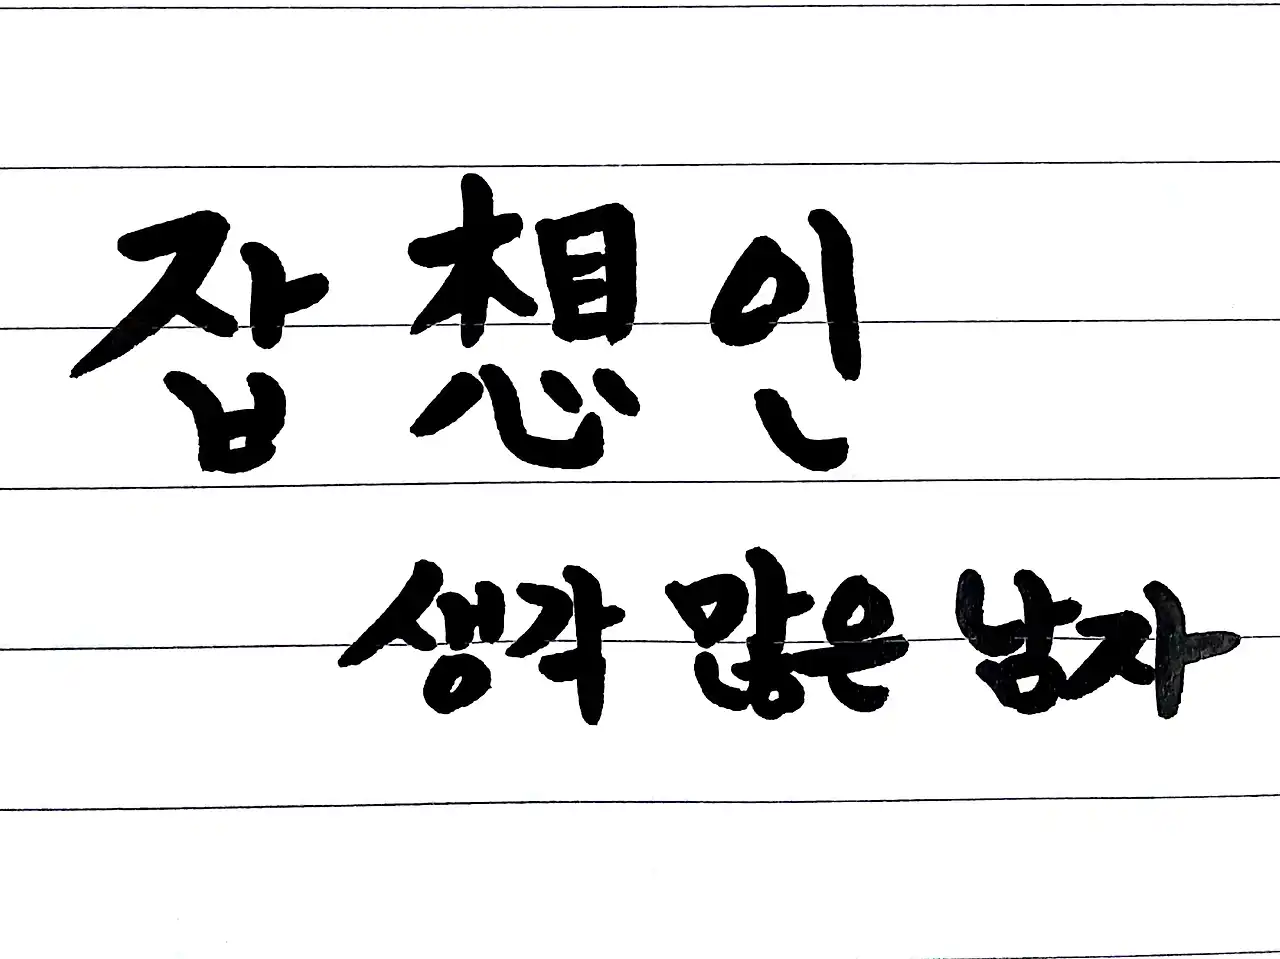 잡想인
생각 많은 남자